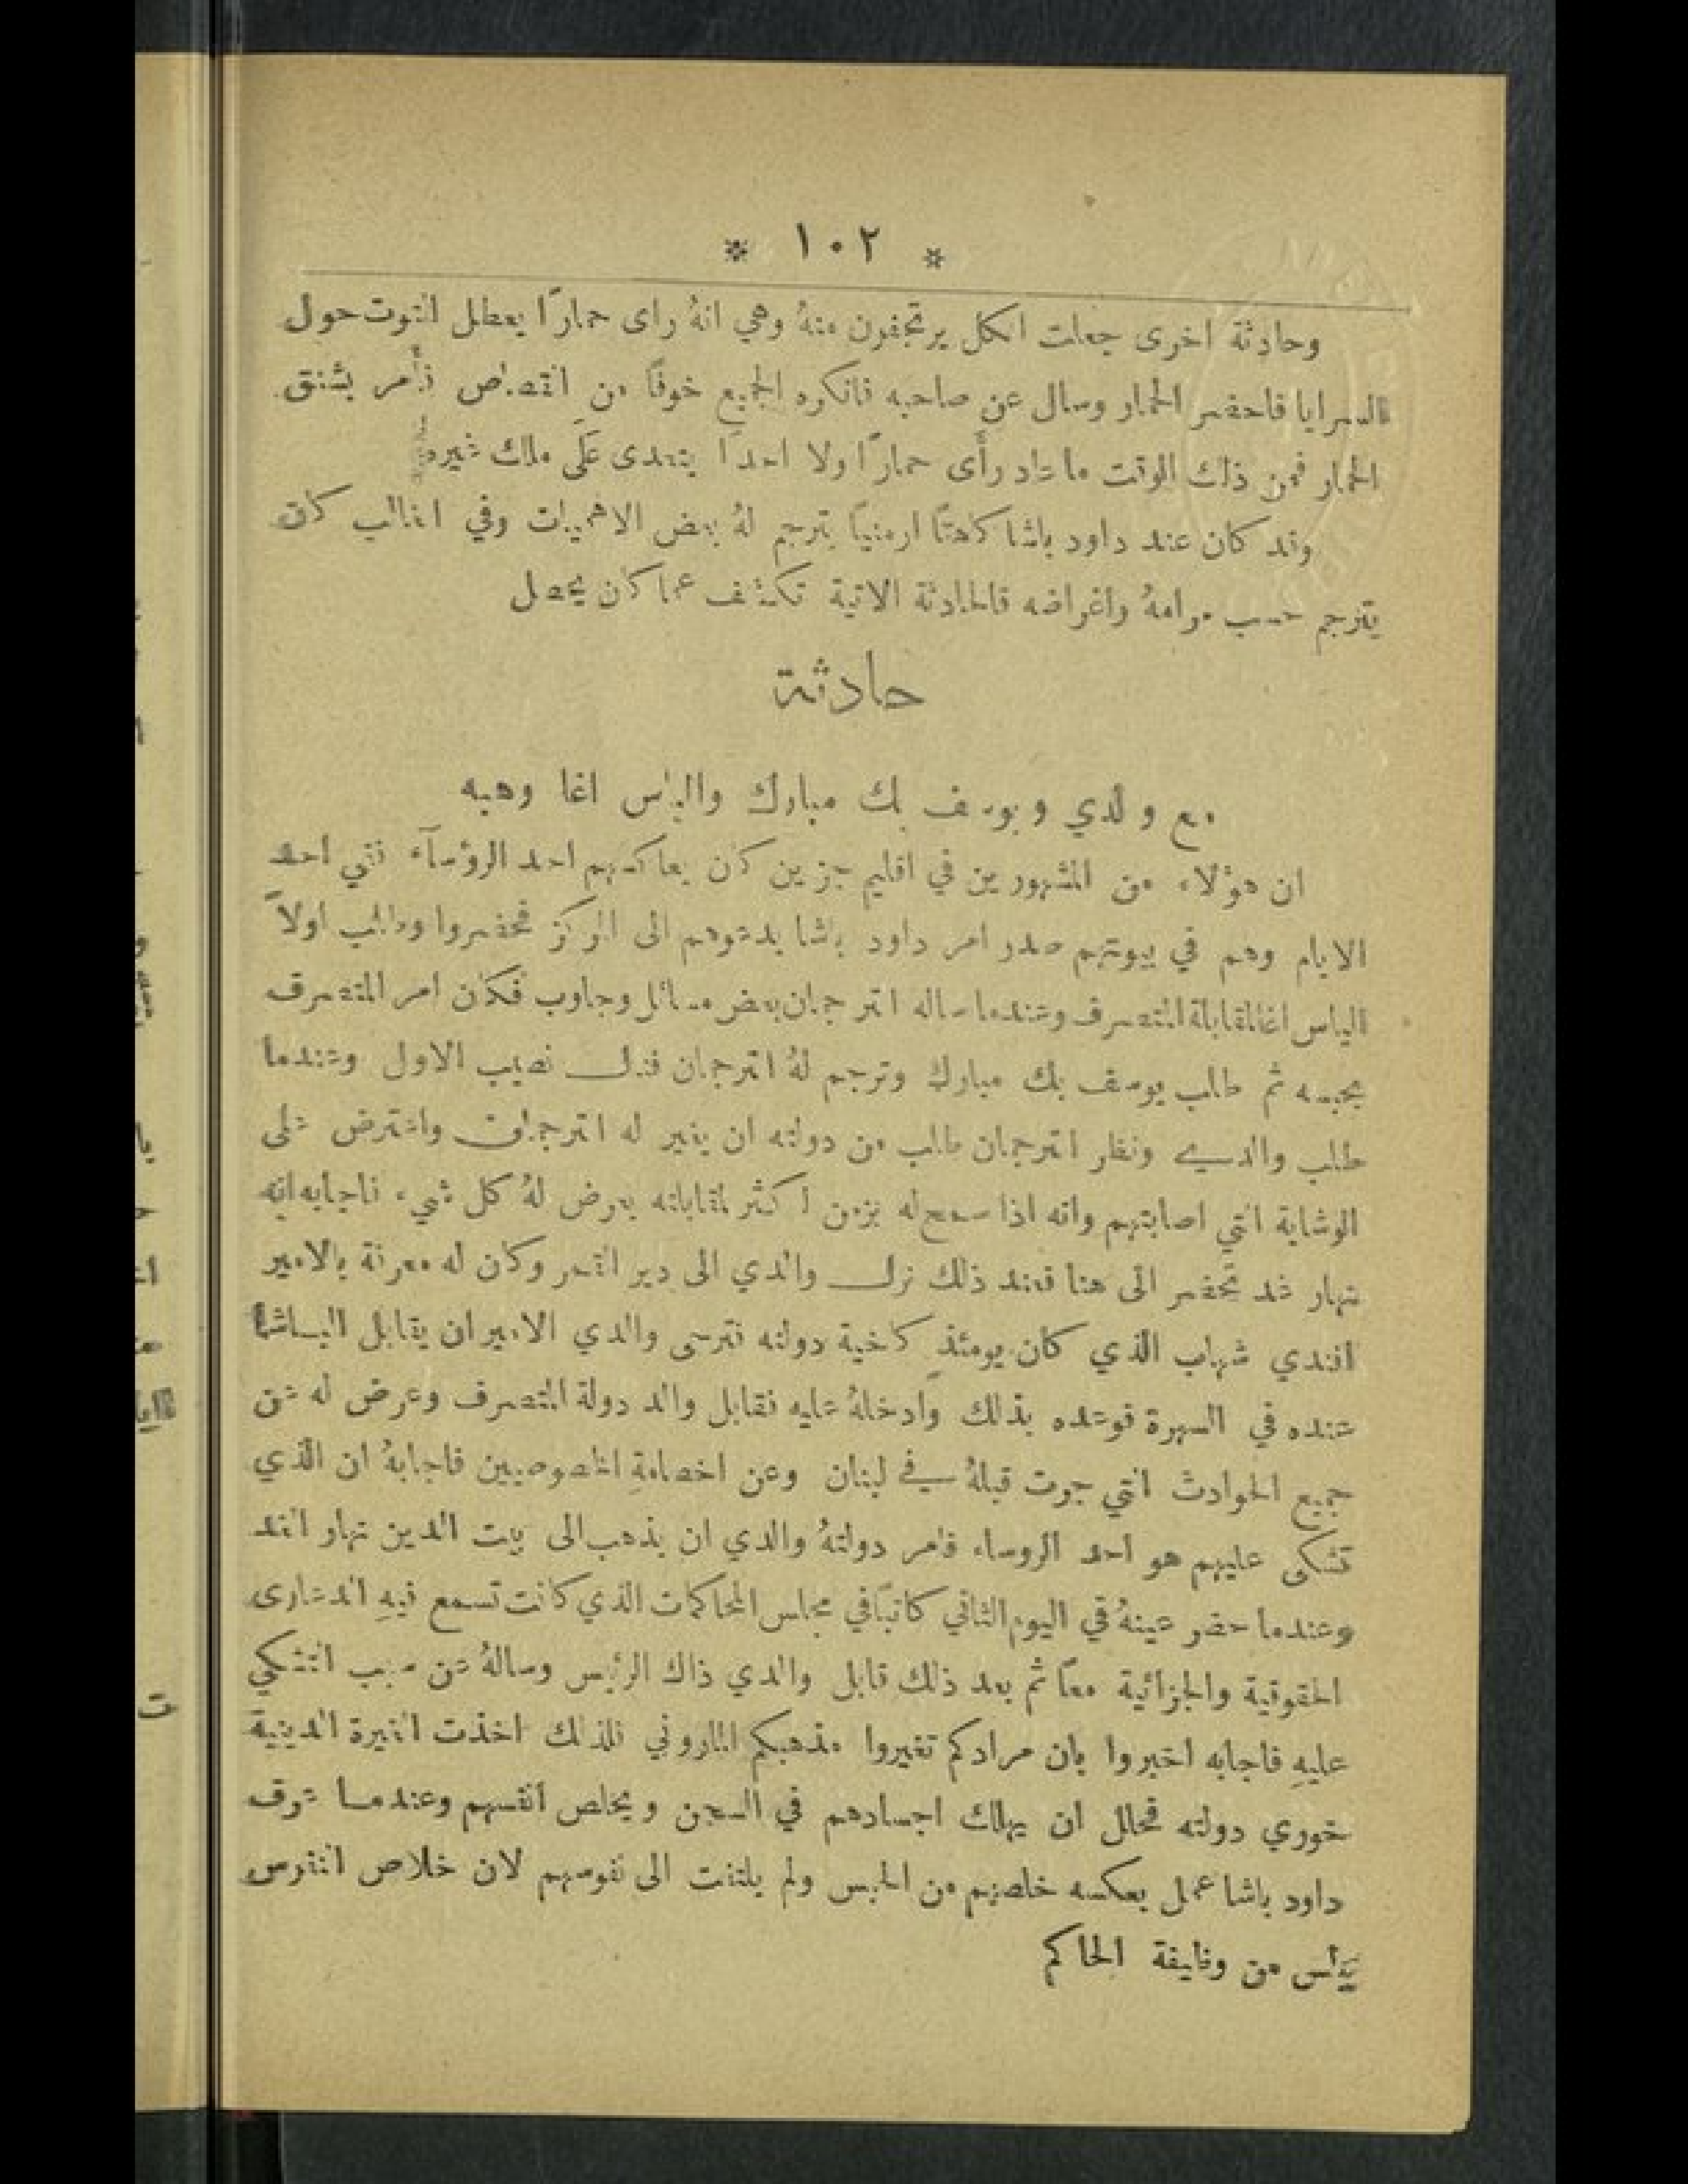 * ١٠٢ *
وحادثة اخرى جعلت الكل يرتجفون منهُ وهي انهُ راى حمارًا يعطل التوت حول
السرايا فاحضر الحمار وسال عن صاحبه فانكره الجميع خوفًا من القصاص فأمر بشنق
الحمار فمن ذلك الوقت ما عاد رأى حمارًا ولا احدًا يتعدى عَلَى ملك غيره
وقد كان عند داود باشا كاهنًا ارمنيًا يترجم لهُ بعض الاهميات وفي الغالب كان
يترجم حسب مرامهُ واغراضه فالحادثة الاتية تكشف عما كان يحصل
حادثة
مع والدي ويوسف بك مبارك والياس اغا وهبه
ان هؤلاء من المشهورين في اقليم جزين كان يعاكسهم احد الرؤسآء ففي احد
الايام وهم في بيوتهم صدر امر داود باشا بدعوهم الى المركز فحضروا وطلب اولاً
الياس اغا لمقابلة المتصرف وعندما ساله الترجمان بعض مسائل وجاوب فكان امر المتصرف
بحبسه ثم طلب يوسف بك مبارك وترجم لهُ الترجمان فنال نصيب الاول وعندما
طلب والدي ونظر الترجمان طلب من دولته ان يغير له الترجمان واعترض على
الوشاية التي اصابتهم وانه اذا سمح له بزمن اكثر لمقابلته يعرض لهُ كل شيء فاجابه انه
نهار غد تحضر الى هنا فعند ذلك نزل والدي الى دير القمر وكان له معرفة بالامير
افندي شهاب الذي كان يومئذٍ كاخية دولته فترجى والدي الامير ان يقابل الباشا
عنده في السهرة فوعده بذلك وادخلهُ عليه فقابل والد دولة المتصرف وعرض له عن
جميع الحوادث التي جرت قبلهُ في لبنان وعن اخصامهِ الخصوصيين فاجابهُ ان الذي
تشكى عليهم هو احد الروساء فامر دولتهُ والدي ان يذهب الى بيت الدين نهار الغد
وعندما حضر عينهُ في اليوم الثاني كاتبًا في مجلس المحاكمات الذي كانت تسمع فيهِ الدعاوى
الحقوقية والجزائية معًا ثم بعد ذلك قابل والدي ذاك الرئيس وسالهُ عن سبب التشكي
عليهِ فاجابه اخبروا بان مرادكم تغيروا مذهبكم الماروني فلذلك اخذت الغيرة الدينية
خوري دولته فحلل ان يهلك اجسادهم في السجن ويخلص انفسهم وعندما عرف
داود باشا عمل بعكسه خلصهم من الحبس ولم يلتفت الى نفوسهم لان خلاص النفوس
ليس من وظيفة الحاكم